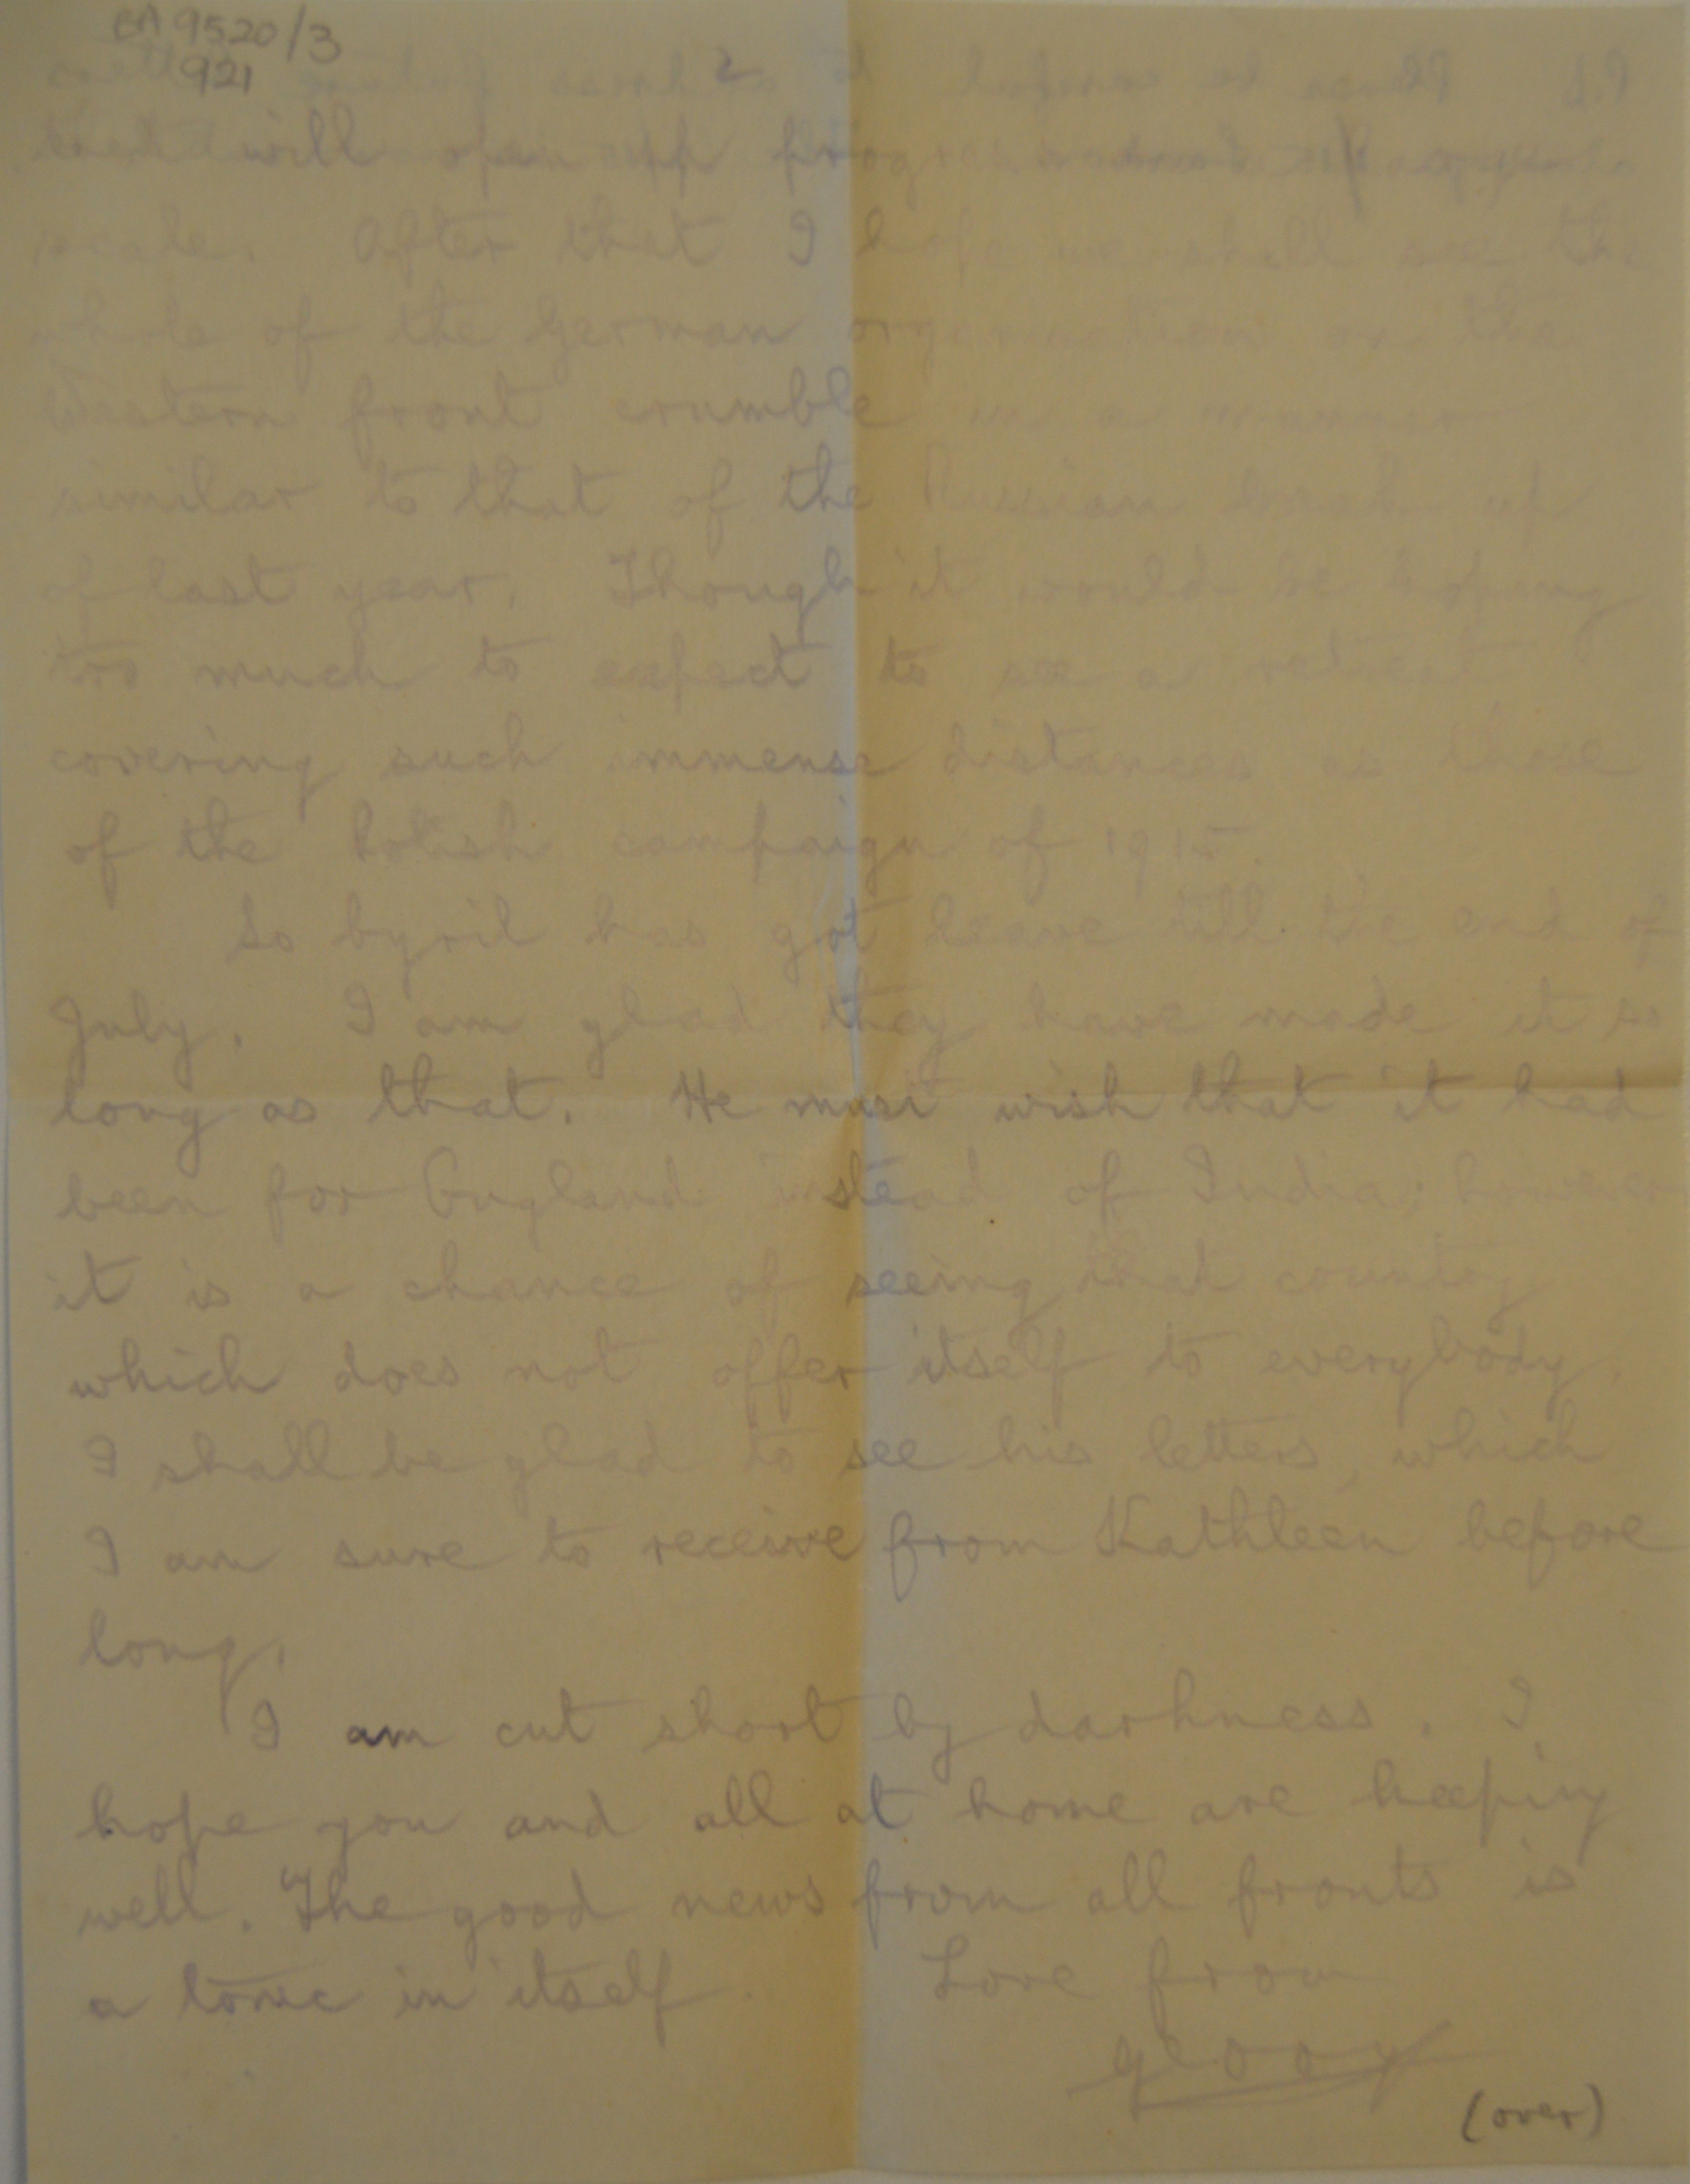 BA 9520/3
921
2
will open up
scale. After that I hope we shall see the
whole of the German organisation on the
Western front crumble in a manner
similar to that of the Russian break up
of last year. Though it would be hoping
too much to expect to see a retreat
covering such immense distances as those
of the Polish campaign of 1915.
So Cyril has got leave till the end of
July. I am glad they have made it so
long as that. He must wish that it had
been for England instead of India; however
it is a chance of seeing that country
which does not offer itself to everybody.
I shall be glad to see his letters, which
I am sure to receive from Kathleen before
long.
I am cut short by darkness. I
hope you and all at home are keeping
well. The good news from all fronts is
a tonic in itself.
Love from
(over)